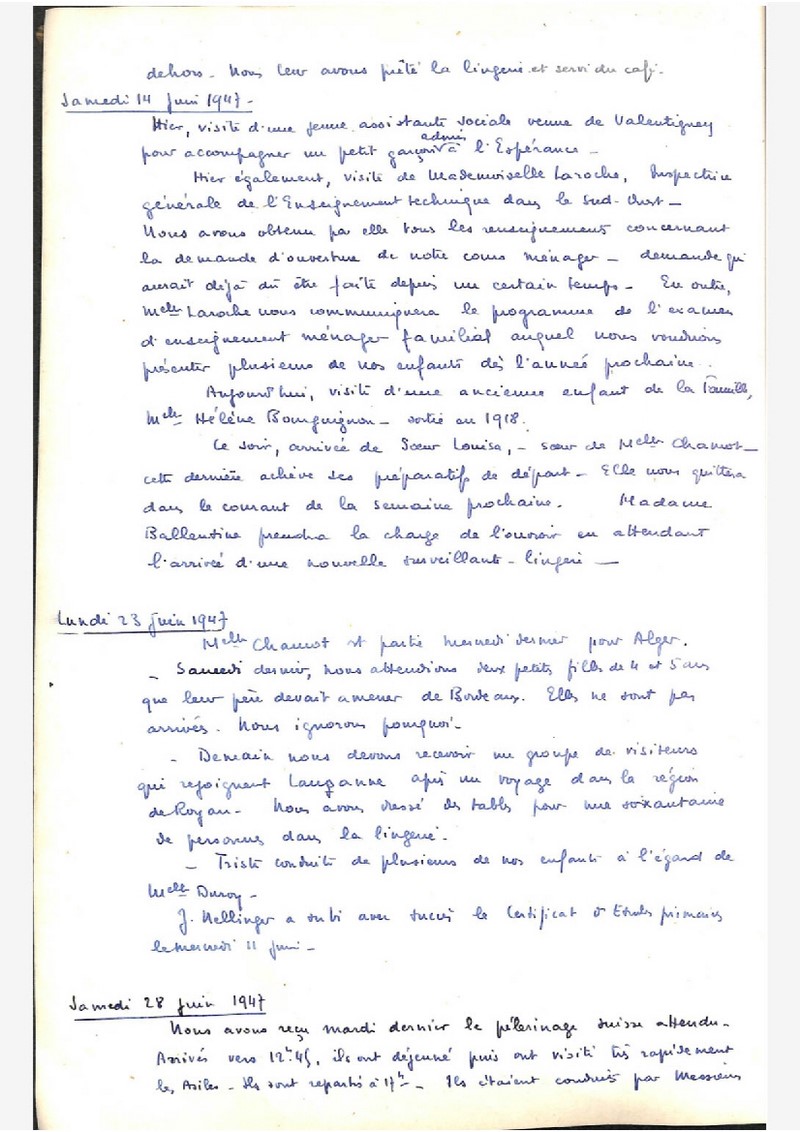 dehors. Nous leur avons prêté la lingerie et servi du café.
Samedi 14 Juin 1947 -
Hier, visite d'une jeune assistante sociale venue de Valentigney
pour accompagner un petit garçon admis à l'Espérance -
Hier également, visite de Mademoiselle Laroche, Inspectrice
générale de l'Enseignement technique dans le Sud-Ouest -
Nous avons obtenu par elle tous les renseignements concernant
la demande d'ouverture de notre cours ménager - demande qui
aurait déjà dû être faite depuis un certain temps - En outre,
Melle Laroche nous communiquera le programme de l'examen
d'enseignement ménager familial auquel nous voudrions
présenter plusieurs de nos enfants dès l'année prochaine.
Aujourd'hui, visite d'une ancienne enfant de la Famille,
Melle Hélène Bourguignon - sortie en 1918.
Ce soir, arrivée de Sœur Louisa, - sœur de Melle Chamot -
cette dernière achève ses préparatifs de départ - Elle nous quittera
dans le courant de la semaine prochaine. Madame
Ballentine prendra la charge de l'ouvroir en attendant
l'arrivée d'une nouvelle surveillante - lingerie -
Lundi 23 Juin 1947
Melle Chamot est partie mercredi dernier pour Alger.
- Samedi dernier, nous attendions deux petites filles de 4 et 5 ans
que leur père devait amener de Bordeaux. Elles ne sont pas
arrivées. Nous ignorons pourquoi -
- Demain nous devons recevoir un groupe de visiteurs
qui rejoignent Lausanne après un voyage dans la région
de Royan - Nous avons dressé des tables pour une soixantaine
de personnes dans la lingerie.
- Triste conduite de plusieurs de nos enfants à l'égard de
Melle Duroy -
J. Mellinger a subi avec succès le Certificat d'Etudes primaires
le mercredi 11 juin -
Samedi 28 Juin 1947
Nous avons reçu mardi dernier le pèlerinage suisse attendu -
Arrivés vers 12h.45, ils ont déjeuné puis ont visité très rapidement
les Asiles - Ils sont repartis à 17h - Ils étaient conduits par Messieurs